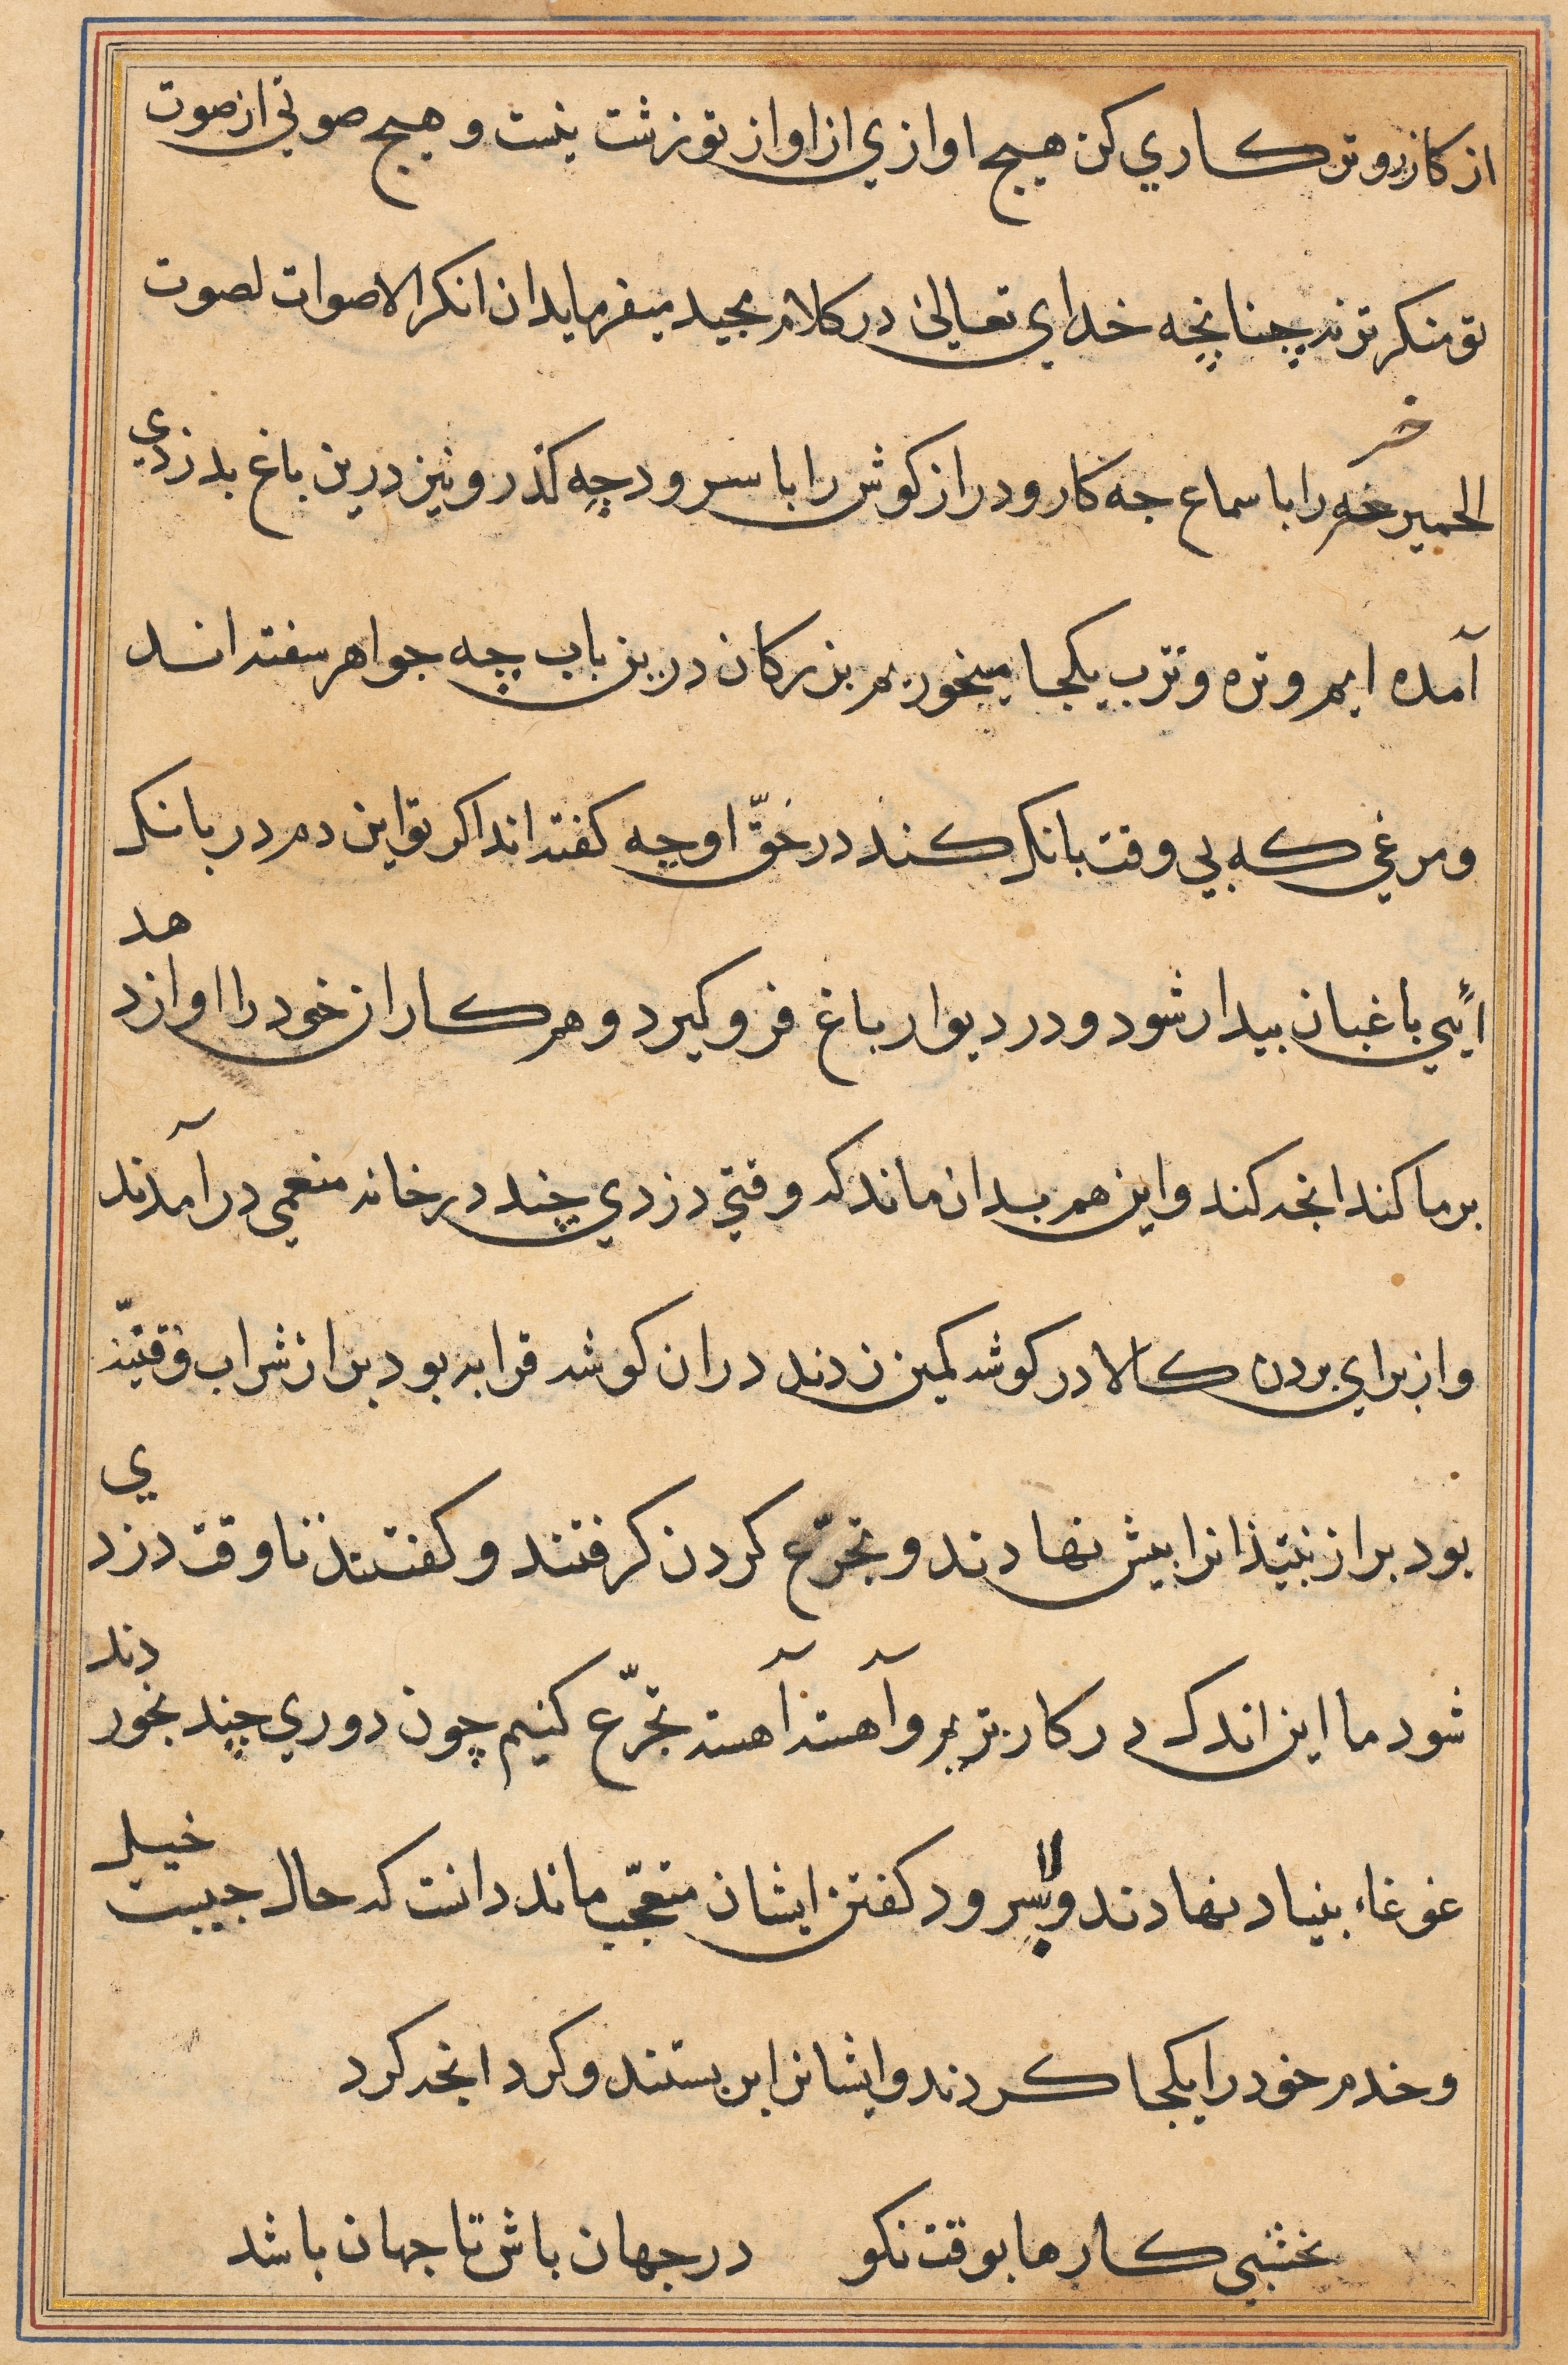 از کازرو ترکاري کن هیچ اوازي از اواز تو زشت نیست و هیچ صوتي از صوت
تو منکرتر نه چنانچه خداي تعالی در کلام مجید میفرماید ان انکر الاصوات لصوت
خر
الحمیر خر را با سماع چه کار و دراز کوش را با سرود چه کذر و نیز درین باغ بدزدي
آمده ایم و تره و ترب یکجا میخوریم بزرکان درین باب چه جواهر سفته اند
و مرغي که بي وقت بانک کند در حقّ او چه کفته اند اکر تو این دم در بانک
ایٔي باغبان بیدار شود و در دیوار باغ فرو کیرد و هر کاران خود را اواز دهد
بر ما کند انچه کند و این هم بدان ماند که وقتي دزدي چند در خانه منعمي در آمدند
و از براي بردن کالا در کوشه کمین زدند در ان کوشه قرابه بود پر از شراب و قنینه
بود پر از نبیذ انرا پیش نهادند و تجرّع کردن کرفتند و کفتند تا وقت دزدي
شود ما این اندک در کار بریم و آهسته آهسته تجرّع کنیم چون دوري چند بخوردند
غوغاء بنیاد نهادند و سرود کفتن ایشان متعجّب ماند دانست که حال چیست خیل
و خدم خود را یکجا کردند و ایشانرا بربستند و کرد انچه کرد
نخشبي کارها بوقت نکو در جهان باش تا جهان باشد